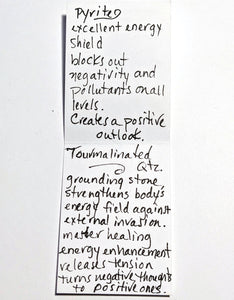 Pyrites
excellent energy
shield
blocks out
negativity and
pollutants on all
levels.
Creates a positive
outlook.
Tourmalinated
Qtz.
grounding stone
strengthens body's
energy field against
external invasion.
master healing
energy enhancement
releases tension
turns negative thoughts
to positive ones.